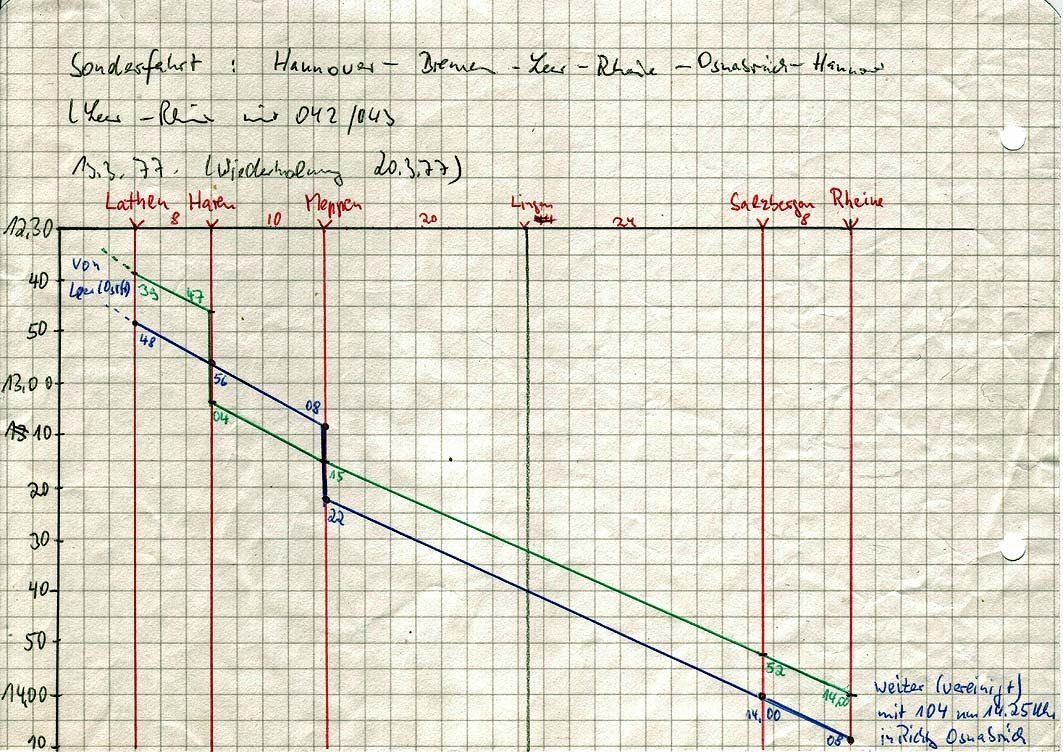 Sonderfahrt : Hannover - Bremen - Leer - Rheine - Osnabrück - Hannover
(Leer - Rheine mit 042/043
13.3.77. (Wiederholung 20.3.77)
Lathen Haren Meppen Lingen Salzbergen Rheine
8 10 20 24 8
12,30
von
Leer (Ostf)
40
39 47
50
48
56
13,00
08
04
10
15
20
22
30
40
50
52
14,00
14,00
14,00
08
10
weiter (vereinigt)
mit 104 um 14.25 Uhr
in Richtg Osnabrück